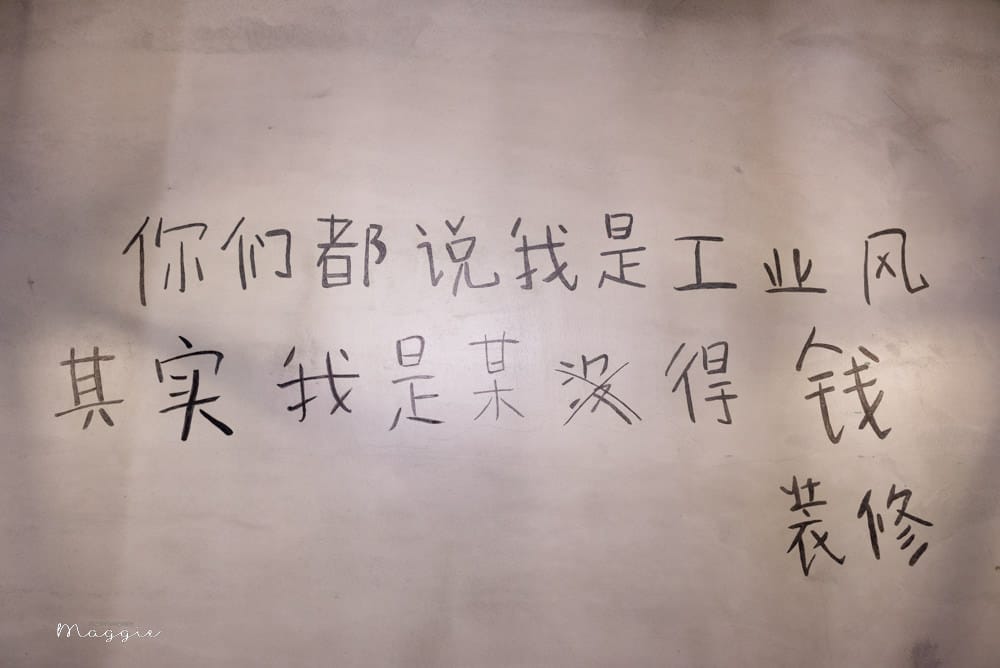 你们都说我是工业风
其实我是某没得钱
装修
Maggie